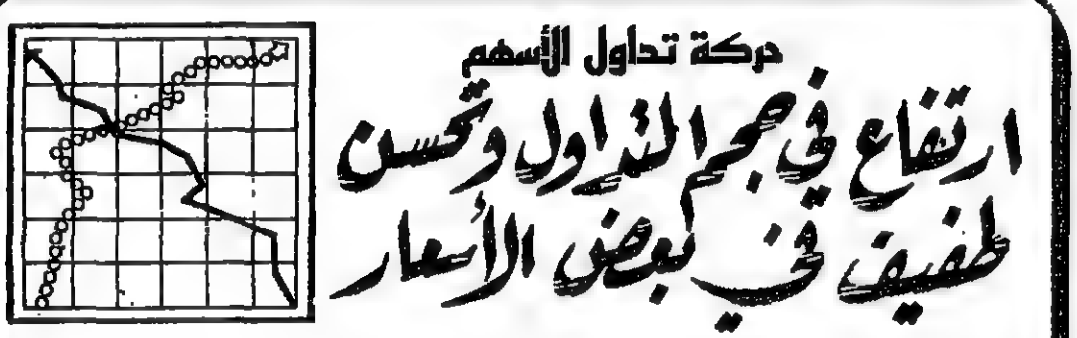 حركة تداول الأسهم
ارتفاع في حجم التداول وتحسن
طفيف في بعض الأسعار